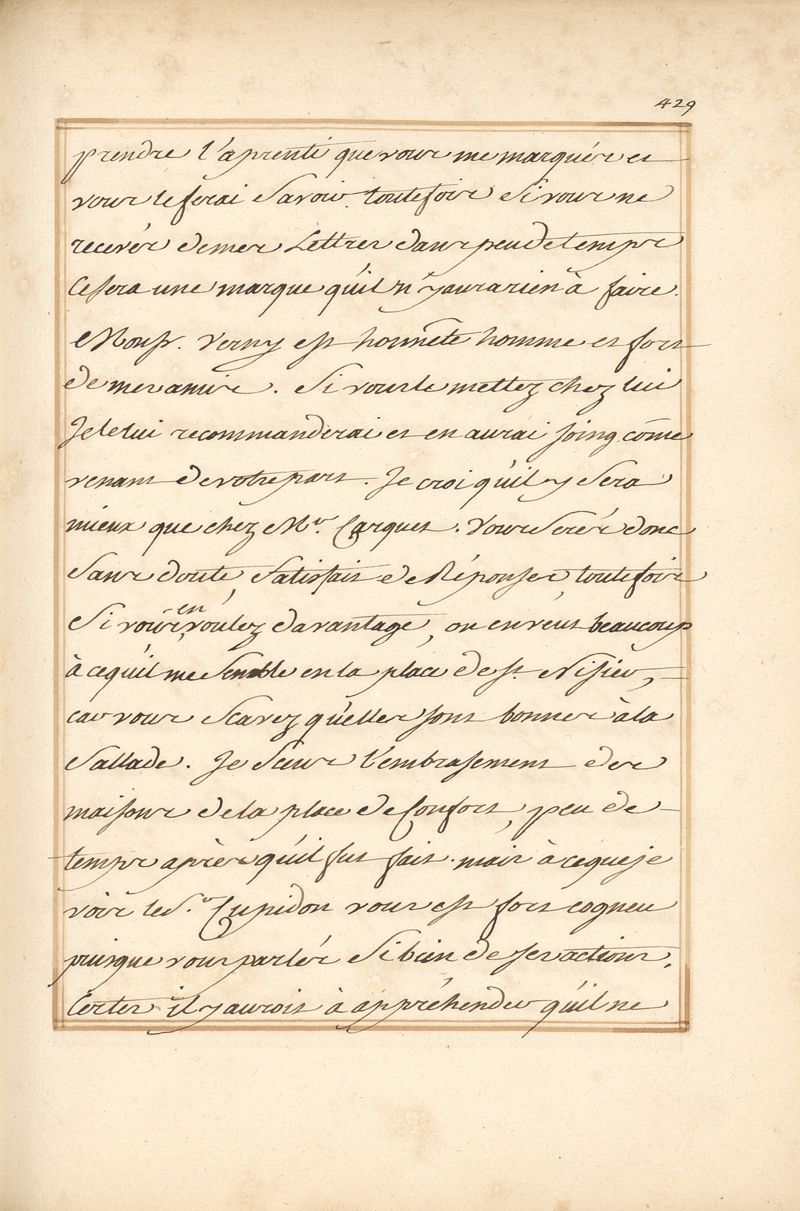 429
prendre l'aprenti que vous me marqués et
vous le ferai savoir. toutefois si vous ne
recevés de mes Lettres dans peu de temps
Ce sera une marque qu'il n'y aura rien à faire.
Monsr. Verny est honnête homme et fort
de mes amis. Si vous le mettez chez lui
Je le lui recommanderai et en aurai soing, cõme
venant de votre part. Je croi qu'il y sera
mieux que chez Mr. Carquet. Vous serés donc
sans doute, satisfait de Réponses, toutefois
Si vous en voulez davantage, on en vent beaucoup
à ce qu'il me semble en la place de St. Nisier,
car vous scavez qu'elles sont bonnes à la
Sallade. Je sceus l'embrasement des
maisons de la place de Confort, peu de
temps après qu'il fut fait. mais à ce que je
vois le Sr. Cupidon vous est fort cogneu
puisque vous parlés si bien de ses actions.
Certes il y auroit à appréhender qu'il ne